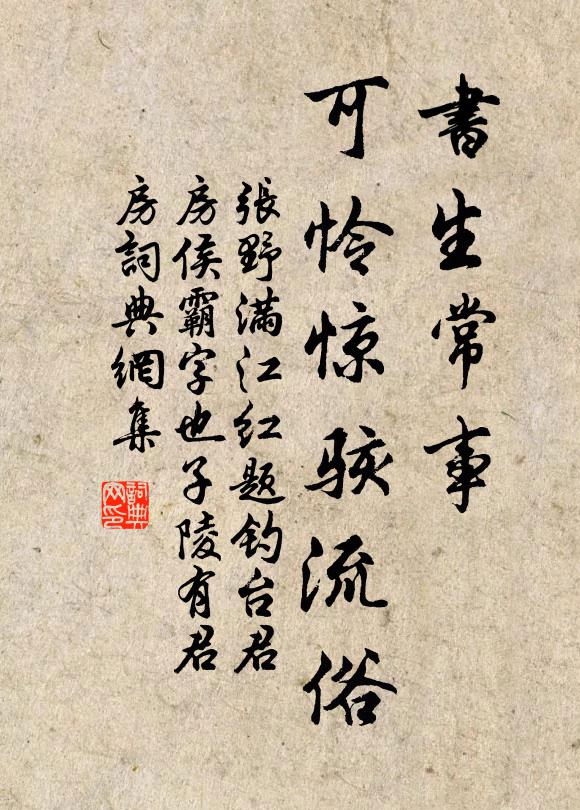 書生常事
可怜惊骇流俗
張野滿江红题钓台君
房侯霸字也子陵有君
房詞典網集
詞典
网印